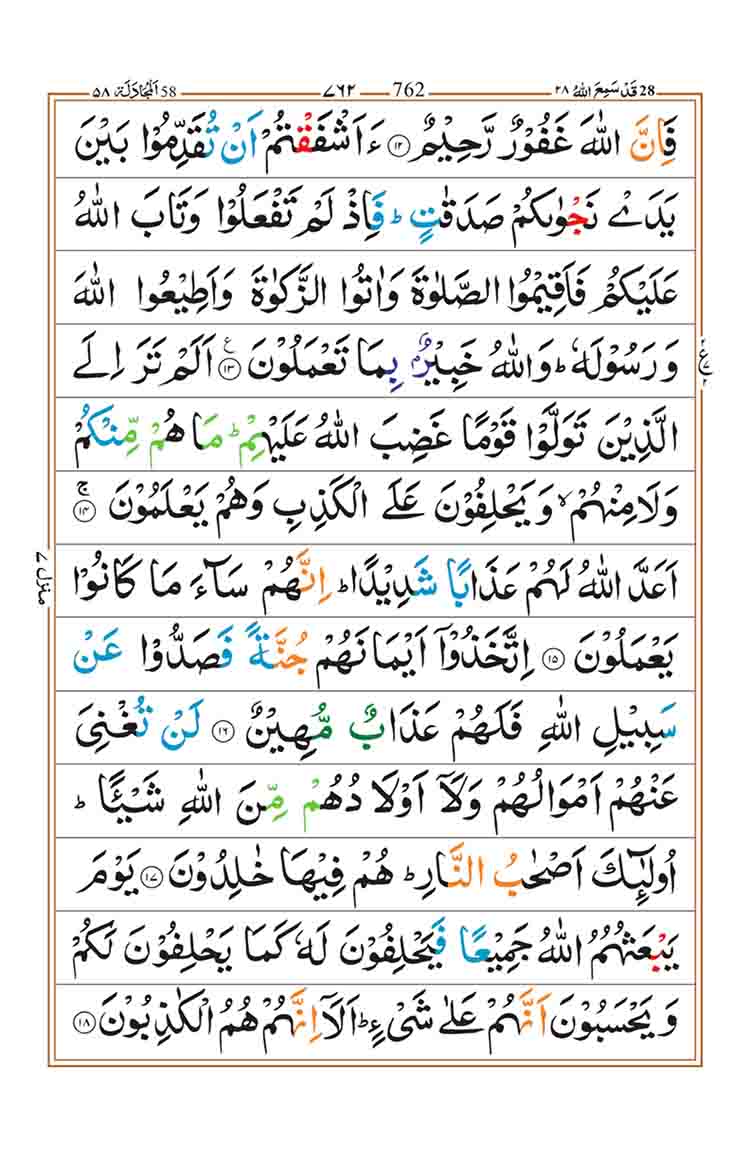 ٥٨ اَلْمُجَادَلَة 58 ٧٦٢ 762 ٢٨ قَدْ سَمِعَ اللّٰهُ 28
فَاِنَّ اللّٰهَ غَفُوْرٌ رَّحِيْمٌ ۝١٢ ءَاَشْفَقْتُمْ اَنْ تُقَدِّمُوْا بَيْنَ
يَدَىْ نَجْوٰىكُمْ صَدَقٰتٍ ؕ فَاِذْ لَمْ تَفْعَلُوْا وَتَابَ اللّٰهُ
عَلَيْكُمْ فَاَقِيْمُوا الصَّلٰوةَ وَاٰتُوا الزَّكٰوةَ وَاَطِيْعُوا اللّٰهَ
وَرَسُوْلَهٗ ؕ وَاللّٰهُ خَبِيْرٌۢ بِمَا تَعْمَلُوْنَ ۝١٣ ع اَلَمْ تَرَ اِلَى
ع
الَّذِيْنَ تَوَلَّوْا قَوْمًا غَضِبَ اللّٰهُ عَلَيْهِمْ ؕ مَا هُمْ مِّنْكُمْ
وَلَا مِنْهُمْ ۙ وَيَحْلِفُوْنَ عَلَى الْكَذِبِ وَهُمْ يَعْلَمُوْنَ ۝١٤ ۚ
منزل ٧
اَعَدَّ اللّٰهُ لَهُمْ عَذَابًا شَدِيْدًا ؕ اِنَّهُمْ سَآءَ مَا كَانُوْا
يَعْمَلُوْنَ ۝١٥ اِتَّخَذُوْۤا اَيْمَانَهُمْ جُنَّةً فَصَدُّوْا عَنْ
سَبِيْلِ اللّٰهِ فَلَهُمْ عَذَابٌ مُّهِيْنٌ ۝١٦ لَنْ تُغْنِىَ
عَنْهُمْ اَمْوَالُهُمْ وَلَاۤ اَوْلَادُهُمْ مِّنَ اللّٰهِ شَيْـًٔا ؕ
اُولٰٓئِكَ اَصْحٰبُ النَّارِ ؕ هُمْ فِيْهَا خٰلِدُوْنَ ۝١٧ يَوْمَ
يَبْعَثُهُمُ اللّٰهُ جَمِيْعًا فَيَحْلِفُوْنَ لَهٗ كَمَا يَحْلِفُوْنَ لَكُمْ
وَيَحْسَبُوْنَ اَنَّهُمْ عَلٰى شَىْءٍ ؕ اَلَاۤ اِنَّهُمْ هُمُ الْكٰذِبُوْنَ ۝١٨